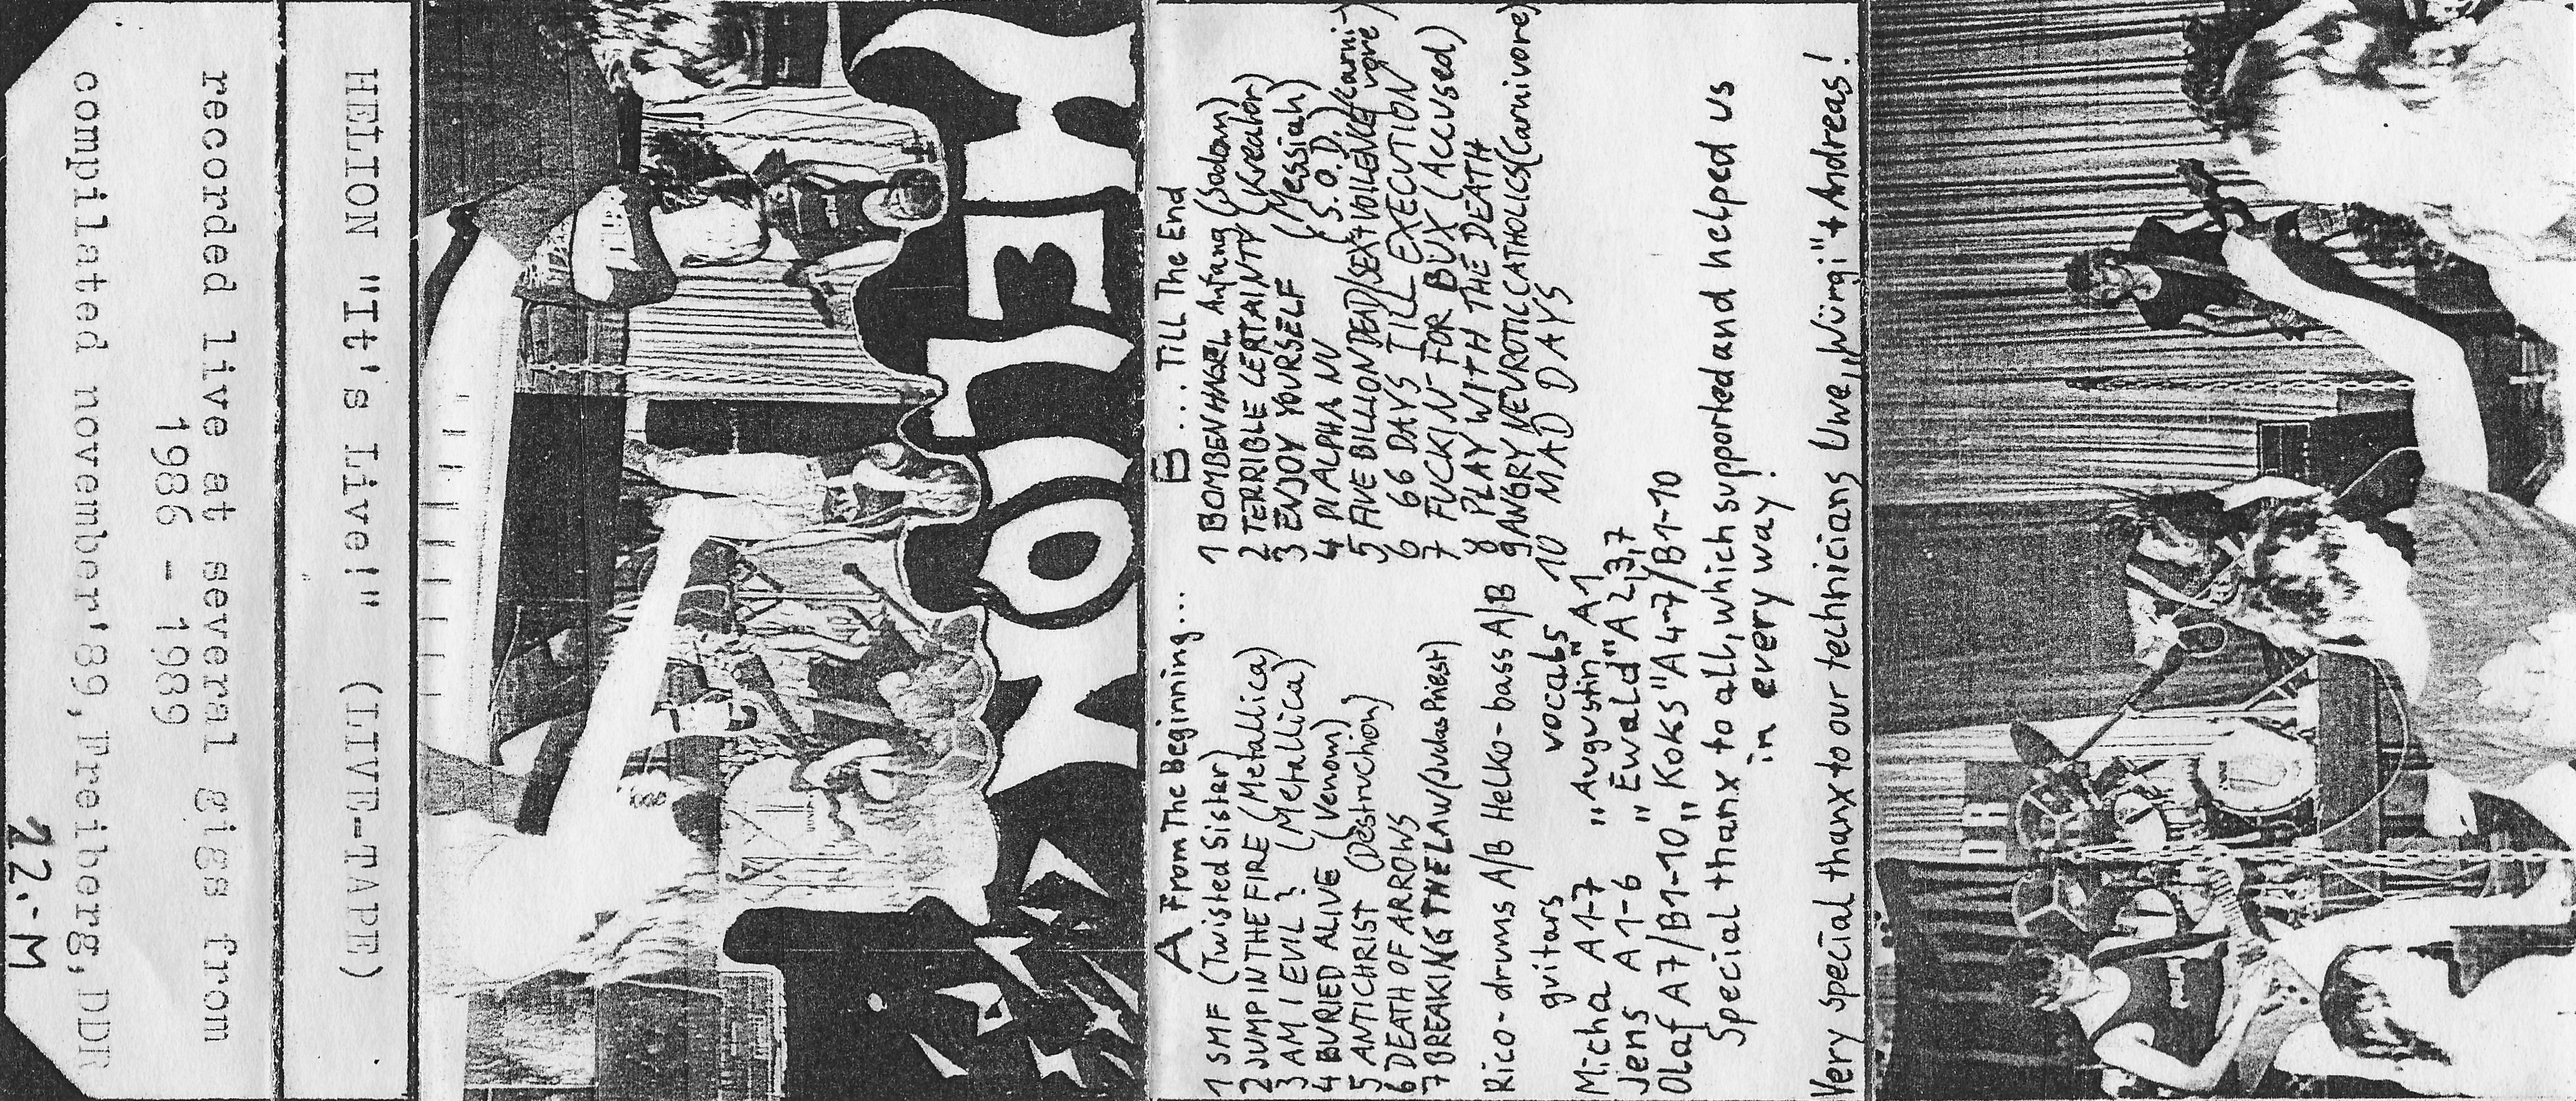 compilated november'89, Freiberg, DDR
recorded live at several gigs from
1986 - 1989
12.-M
HELION "It's Live!" (LIVE-TAPE)
HELION
A From The Beginning...
1 SMF (Twisted Sister)
2 JUMP IN THE FIRE (Metallica)
3 AM I EVIL? (Metallica)
4 BURIED ALIVE (Venom)
5 ANTICHRIST (Destruction)
6 DEATH OF ARROWS
7 BREAKING THE LAW (Judas Priest)
B ... Till The End
1 BOMBENHAGEL Anfang (Sodom)
2 TERRIBLE CERTAINTY (Kreator)
3 ENJOY YOURSELF (Messiah)
4 PI ALPHA NU (S.O.D.)
5 FIVE BILLION DEAD/SEX+VOILENCE (Carni-vore)
6 66 DAYS TILL EXECUTION
7 FUCKIN' FOR BUX (Accused)
8 PLAY WITH THE DEATH
9 ANGRY NEUROTIC CATHOLICS (Carnivore)
10 MAD DAYS
Rico - drums A/B Heiko - bass A/B
guitars vocals
Micha A 1-7 „Augustin" A 1
Jens A 1-6 „Ewald" A 2,3,7
Olaf A7/B1-10 „Koks" A 4-7/B1-10
Special thanx to all, which supported and helped us
in every way!
Very special thanx to our technicians Uwe, „Würgi" + Andreas!